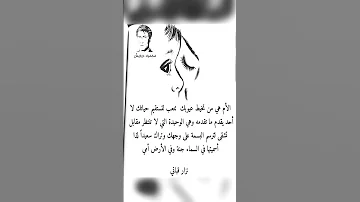 محمود درويش
الأم هي من تخيط عيوبك تتعب لتستقيم حياتك لا
أحد يقدم ما تقدمه وهي الوحيدة التي لا تنتظر مقابل
تشقى لترسم البسمة على وجهك وتراك سعيداً لذا
أسميتها في السماء جنة وفي الأرض أمي
نزار قباني